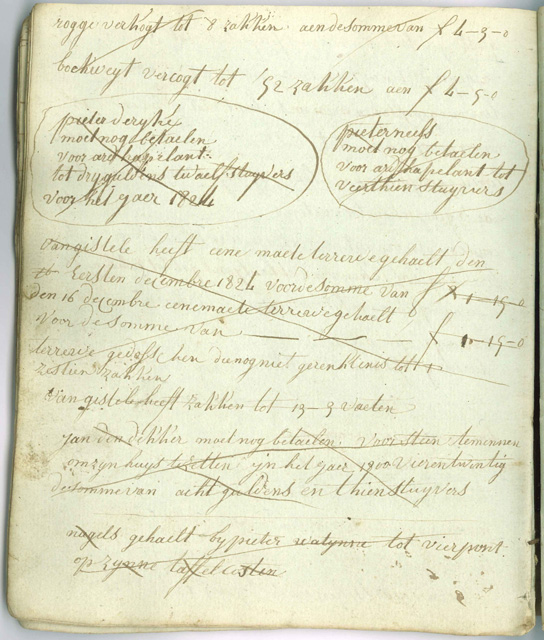 rogge verkogt tot 8 zakken aendesommevan f 4-5-0
boekweyt vercogt tot 52 zakken aen f 4-5-0
pieter deryke
moet nog betaelen
voor ardhapelant
tot dry guldens twaelf stuyvers
voor het jaer 1824
pieterneefs
moet nog betaelen
voor ardhapelant tot
vierthien stuyvers
vangistele heeft eene maete terrewe gehaelt den
eersten decembre 1824 voor de somme van f 1-15-0
den 16 decembre eenemaete terrewe gehaelt
voor de somme van f 1-15-0
terrewe gedosschen die nog niet gerenkt is tot
zestien zakken
van gistele heeft zakken tot 13-3 vaeten
jan den dekker moet nog betaelen voor steen te mennen
om zyn huys te setten yn het jaer 1800 vierentwintig
de somme van acht guldens en thien stuyvers
nagels gehaelt by pieter tot vier pont
op zynne taffel